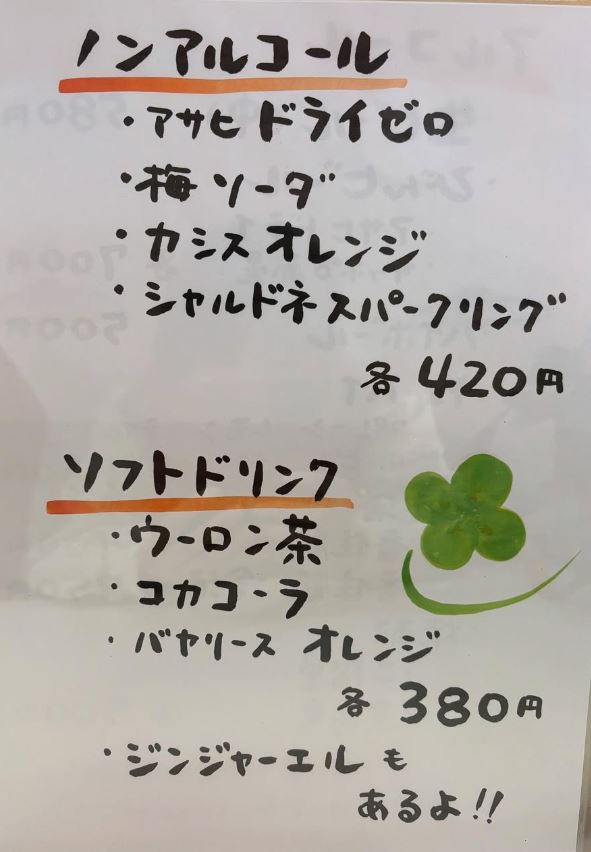 ノンアルコール
・アサヒ ドライゼロ
・梅ソーダ
・カシスオレンジ
・シャルドネスパークリング
各 420円
ソフトドリンク
・ウーロン茶
・コカコーラ
・バヤリース オレンジ
各 380円
・ジンジャーエルも
あるよ!!